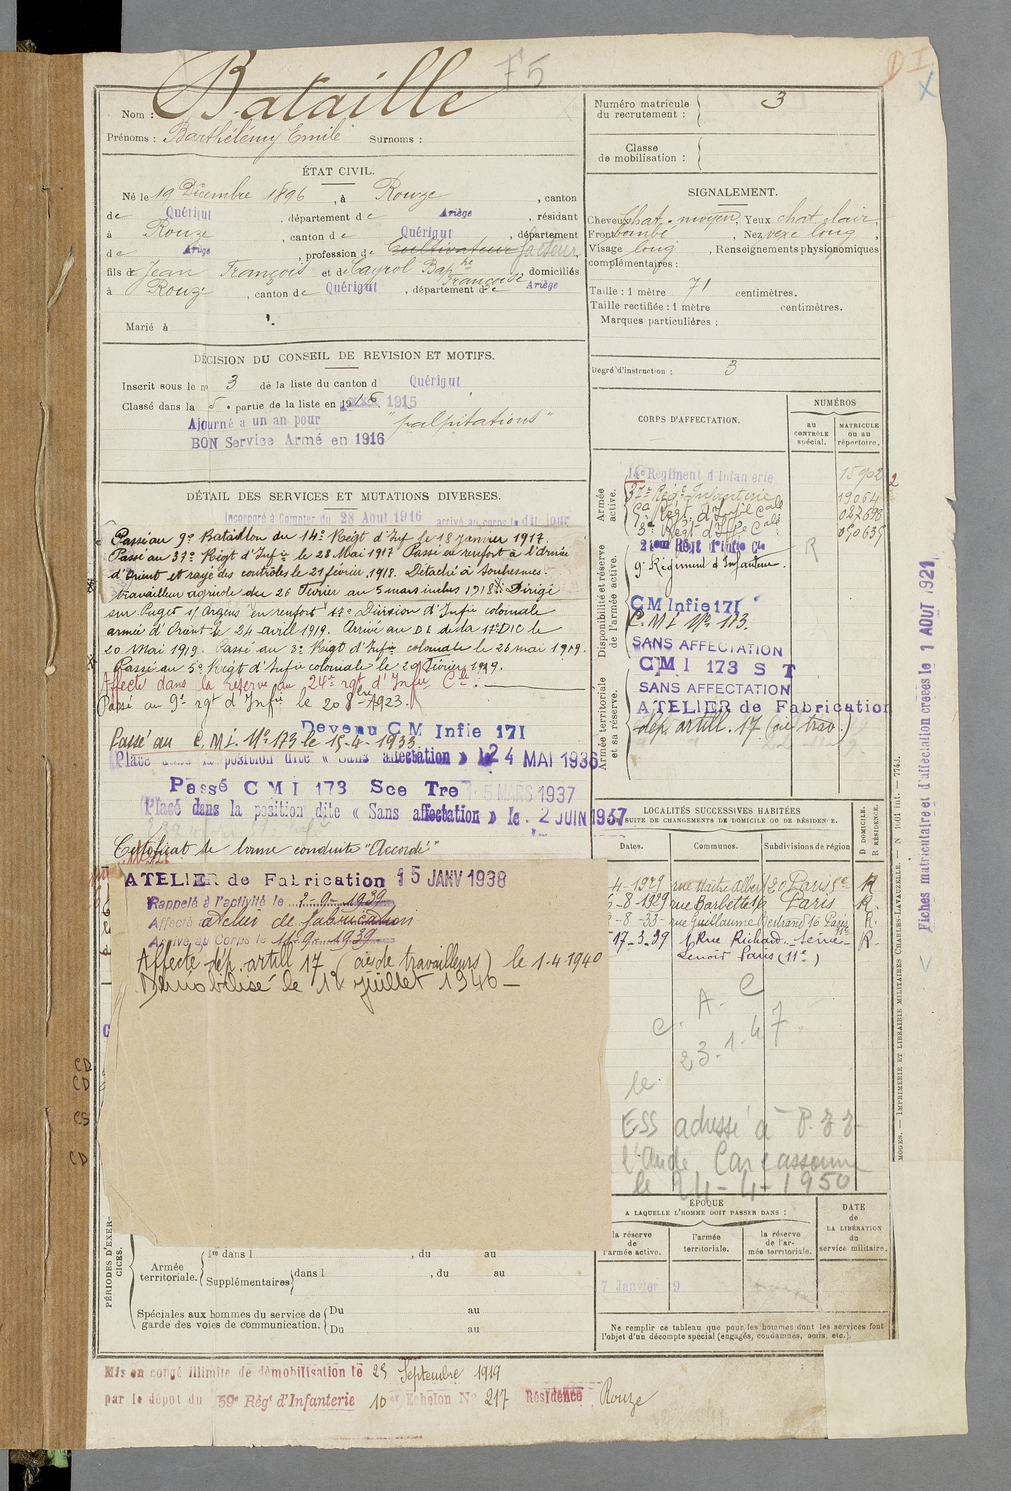 F5
Nom : Bataille
Prénoms : Barthélémy Emile Surnoms :
ÉTAT CIVIL.
Né le 19 Décembre 1896, à Rouze, canton
de Quérigut, département de Ariège, résidant
à Rouze, canton de Quérigut, département
de Ariège, profession de Cultivateur facteur
fils de Jean François et de Cayrol Bap^te Françoise, domiciliés
à Rouze, canton de Quérigut, département de Ariège
Marié à
DÉCISION DU CONSEIL DE REVISION ET MOTIFS.
Inscrit sous le n° 3 de la liste du canton d Quérigut
Classé dans la 5e partie de la liste en 1916 1915
Ajourné a un an pour "palpitations"
BON Service Armé en 1916
DÉTAIL DES SERVICES ET MUTATIONS DIVERSES.
Incorporé à Compter du 28 Aout 1916 arrivé au corps le dit jour
Passé au 9e Bataillon du 14e Régt d'Inf le 18 janvier 1917.
Passé au 37e Régt d'Infie le 28 Mai 1917 Passé en renfort à l'Armée
d'Orient et rayé des contrôles le 21 février 1918. Détaché à Soubesmes.
travailleur agricole du 26 Février au 5 mars inclus 1918. Dirigé
sur Puget s/ Argens en renfort 17e Division d'Infie coloniale
armée d'Orient le 24 avril 1919. Arrivé au DI de la 17e DIC le
20 Mai 1919. Passé au 3e Régt d'Infie coloniale le 26 mai 1919.
Passé au 5e Régt d'Infie coloniale le 20 Février 1919.
Affecté dans la réserve au 24e rgt d'Infie Cle.
Passé au 9e rgt d'Infie le 20 - 1923.
Devenu CM Infie 171
Passé au C.M.I. N° 173 le 15-4-1933.
Placé dans la position dite « Sans affectation » le 24 MAI 1936
Passé CMI 173 Sce Tre 15 MARS 1937
Placé dans la position dite « Sans affectation » le 2 JUIN 1937
Certificat de bonne conduite "Accordé"
ATELIER de Fabrication 15 JANV 1938
Rappelé à l'activité le 2-9-1939
Affecté atelier de fabrication
Arrivé au Corps le 11-9-1939
Affecté dép. artill 17 (aide travailleurs) le 1-4-1940
Démobilisé le 12 juillet 1940
PÉRIODES D'EXERCICES.
Armée territoriale.
1re dans l , du au
Supplémentaires dans l , du au
Spéciales aux hommes du service de garde des voies de communication.
Du au
Du au
Mis en congé illimité de démobilisation le 25 Septembre 1919
par le dépôt du 59e Régt d'Infanterie 10e Echelon N° 217 Résidence Rouze
Numéro matricule du recrutement : 3
Classe de mobilisation :
SIGNALEMENT.
Cheveux chat. moyen, Yeux chat clair,
Front bombé, Nez vexe long,
Visage long, Renseignements physionomiques
complémentaires :
Taille : 1 mètre 71 centimètres.
Taille rectifiée : 1 mètre centimètres.
Marques particulières :
Degré d'instruction : 3
CORPS D'AFFECTATION.
NUMÉROS
au CONTRÔLE spécial.
MATRICULE ou au répertoire.
Armée active.
14e Régiment d'Infanterie 15902
37e Régt Infanterie 19064
3e Régt d'Infie Cale 050635
21eme Régt d'Infie Cle
Disponibilité et réserve de l'armée active.
R
9e Régiment d'Infanterie.
CM Infie 171
C.M.I. N° 173.
SANS AFFECTATION
CMI 173 S T
SANS AFFECTATION
Armée territoriale et sa réserve.
ATELIER de Fabrication
dép. artill. 17 (aide trav.)
LOCALITÉS SUCCESSIVES HABITÉES
PAR SUITE DE CHANGEMENTS DE DOMICILE OU DE RÉSIDENCE.
D DOMICILE. R RÉSIDENCE.
Dates. Communes. Subdivisions de région
-4-1929 rue Maître Albert 20 Paris 5e R
-8-1929 rue Barbette 16 Paris R.
-8-33- rue Guillaume Bertrand 16 Paris 11e R.
17-3-39 1 Rue Richard- R.
Lenoir Paris (11e)
C. A. C
23.1.47
le
ESS adressé à
l'Aude Carcassonne
le 24-4-1950
ÉPOQUE
A LAQUELLE L'HOMME DOIT PASSER DANS :
la réserve de l'armée active.
l'armée territoriale.
la réserve de l'armée territoriale.
DATE de LA LIBÉRATION du service militaire.
7 Janvier 9
Ne remplir ce tableau que pour les hommes dont les services font
l'objet d'un décompte spécial (engagés, condamnés, omis, etc.).
MOGES. — IMPRIMERIE ET LIBRAIRIE MILITAIRES CHARLES-LAVAUZELLE.
Fiches matriculaire et d'affectation creées le 1 AOUT 1921